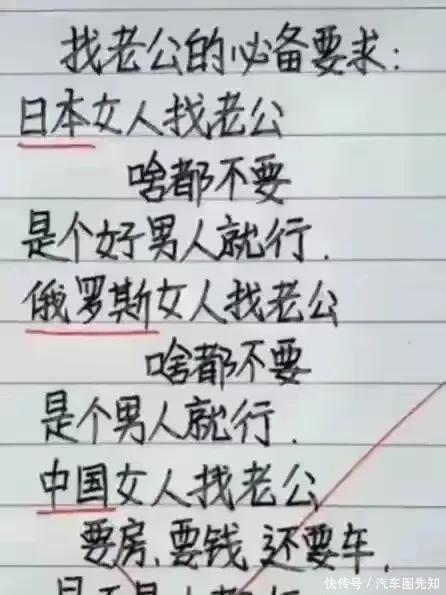 找老公的必备要求:
日本女人找老公
啥都不要
是个好男人就行.
俄罗斯女人找老公
啥都不要
是个男人就行.
中国女人找老公
要房、要钱、还要车,
快传号/汽车圈先知